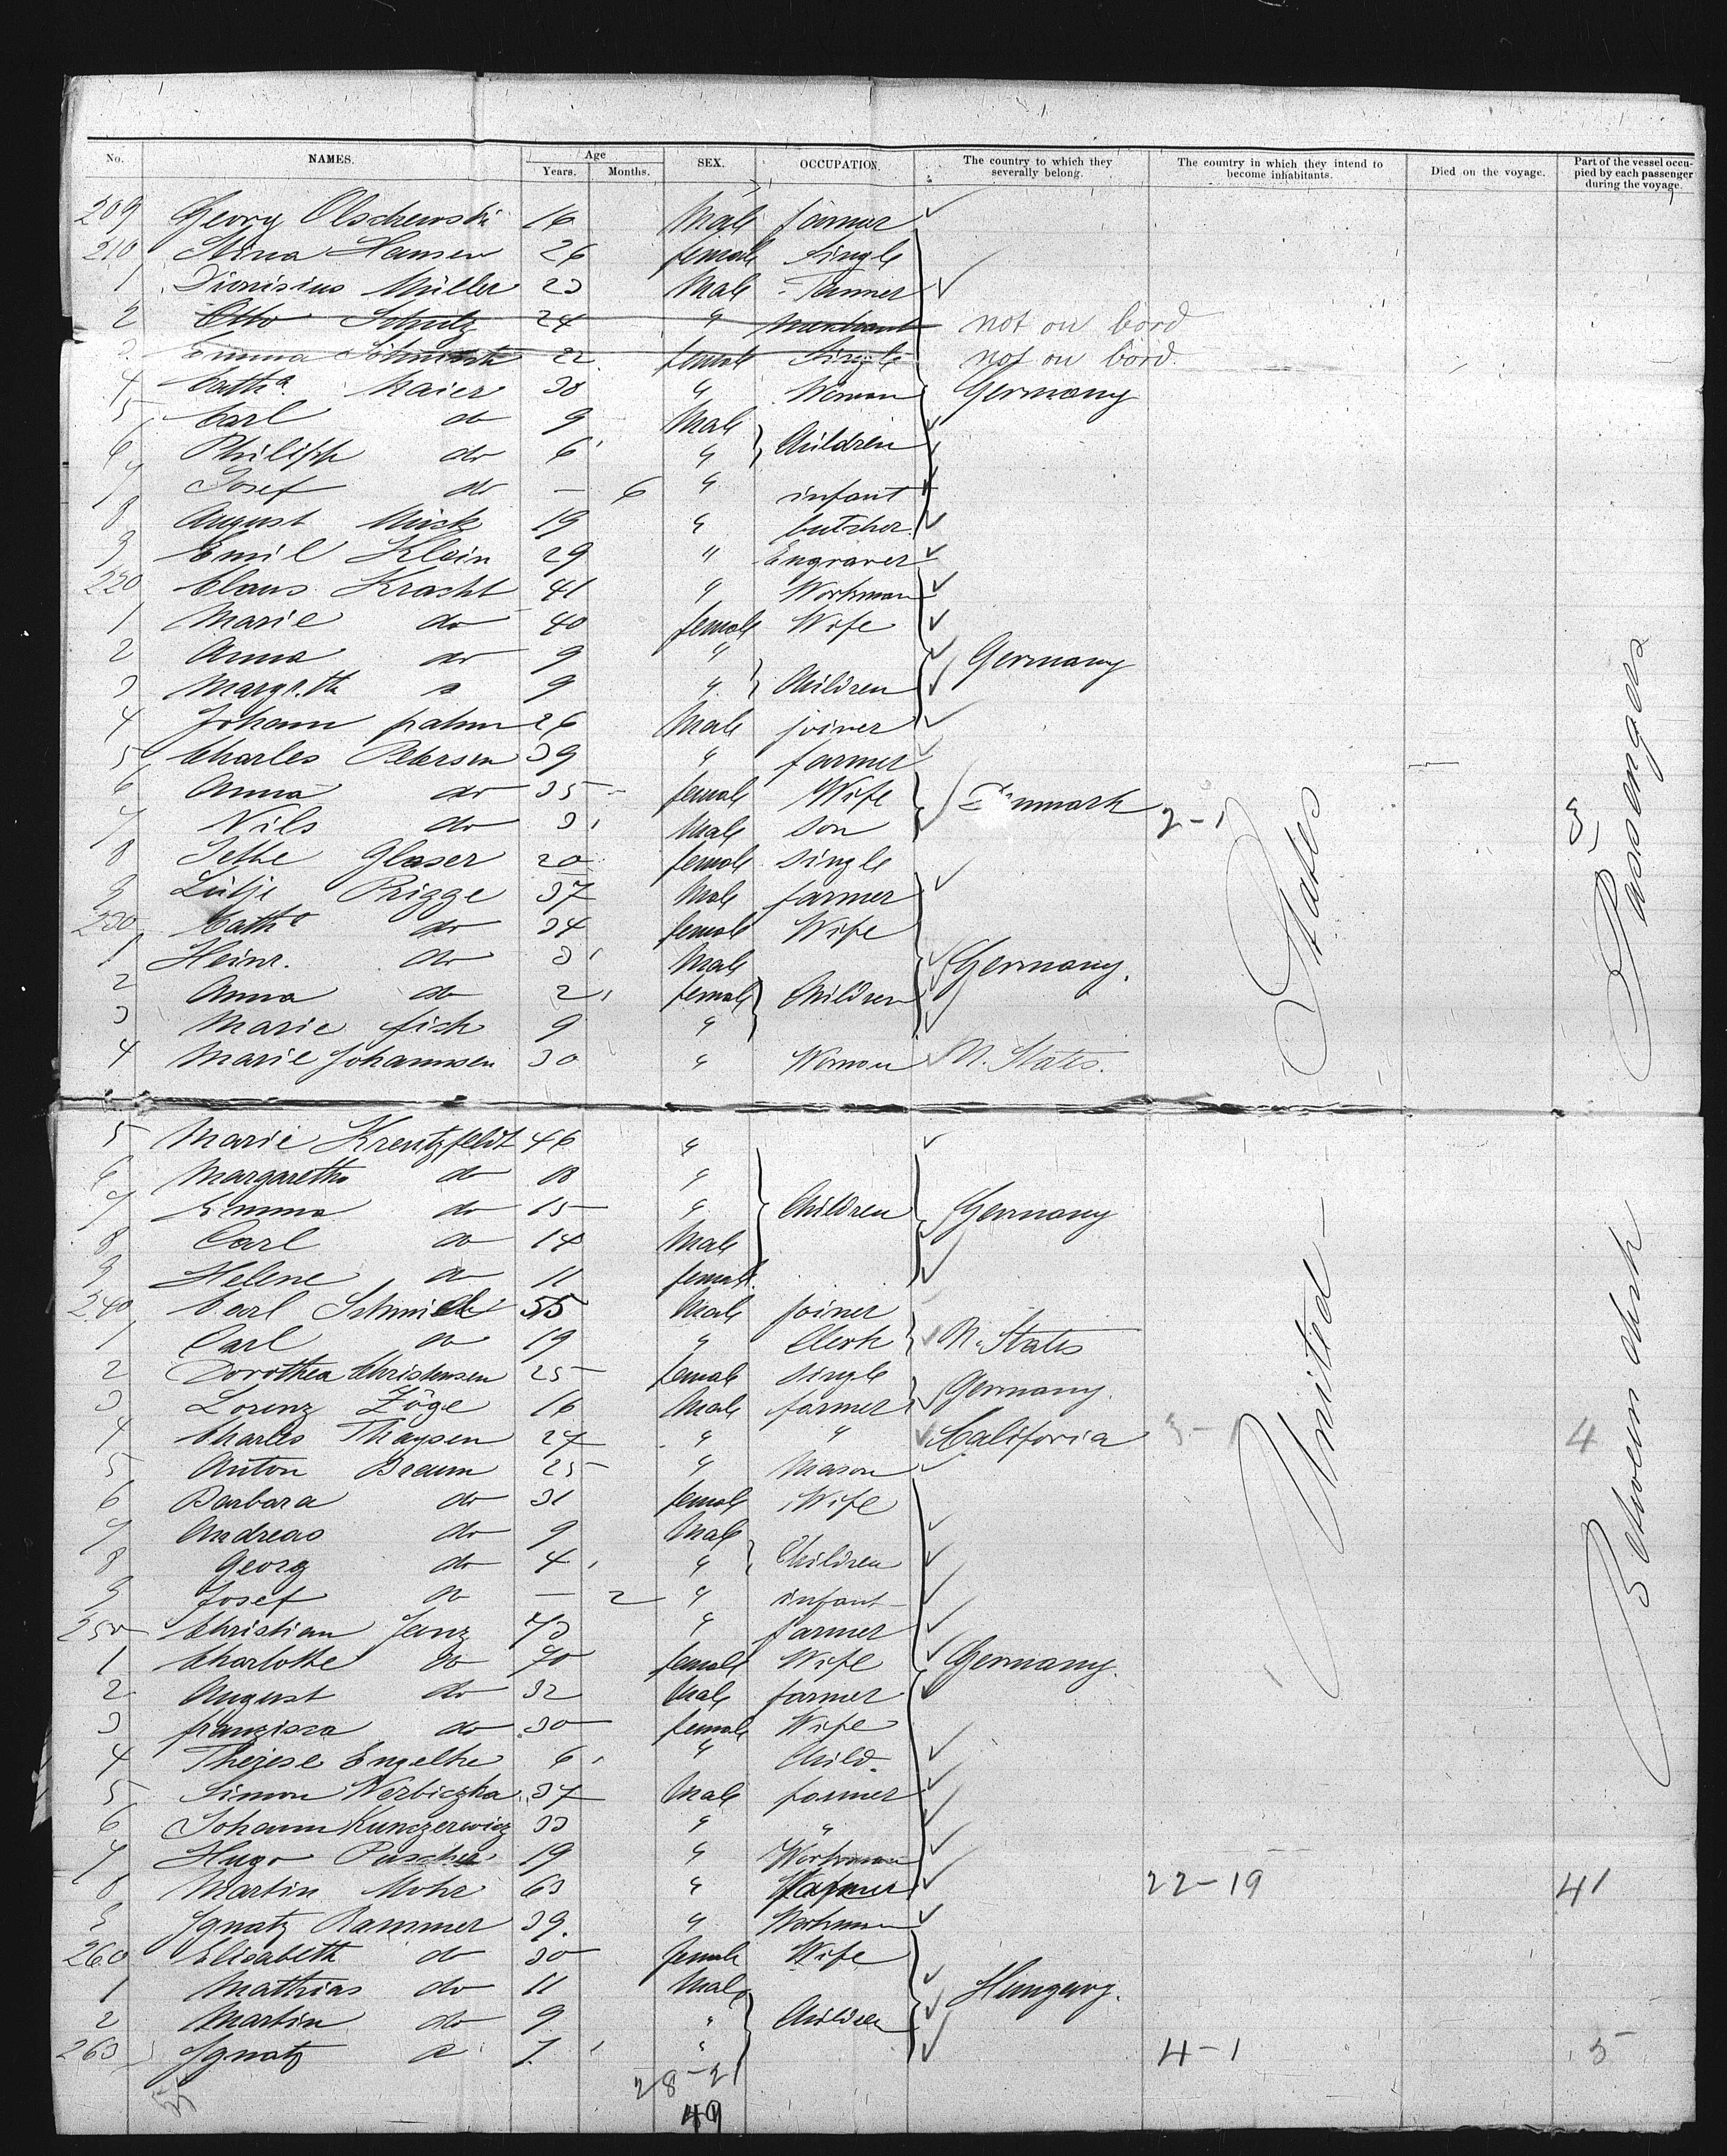 No. NAMES. Age Years. Months. SEX. OCCUPATION. The country to which they severally belong. The country in which they intend to become inhabitants. Died on the voyage. Part of the vessel occupied by each passenger during the voyage.
209 Georg Olschewski 16 Male farmer
210 Stina Hansen 26 female Single
1 Dionisius Müller 23 Male Tanner
2 Otto Schulz 24 " merchant not on bord
3 Emma 22 female Single not on bord
4 Catha. Maier 38 " Woman Germany
5 Carl do 9 Male
6 Philipp do 6 " Children
7 Josef do — 6 " infant
8 August 19 " butcher
9 Emil Klein 29 " Engraver
220 Claus Kracht 41 " Workman
1 Marie do 40 female Wife
2 Anna do 9 " Germany
3 Margrth 9 " Children
4 Johann 26 Male joiner
5 Charles Petersen 39 " farmer
6 Anna do 35 female Wife Denmark
7 Nils do 3 Male son 2-1 3
8 Jette Glaser 20 female single
9 Lütje Brigge 37 Male farmer
230 Catha do 34 female Wife
1 Heinr. do 3 Male Germany.
2 Anna do 2 female Children
3 Marie fick 9 "
4 Marie Johannsen 30 " Woman U. States.
5 Marie Kreutzfeldt 46 "
6 Margaretha do 18 "
7 Emma do 15 " Children Germany
8 Carl do 14 Male
9 Helene do 11 female
240 Carl Schmidt 55 Male joiner
1 Carl do 19 " Clerk U. States
2 Dorothea Christensen 25 female single
3 Lorenz Zöge 16 Male farmer Germany.
4 Charles Thaysen 27 " " Califoria 3- 4
5 Anton Braun 25 " Mason
6 Barbara do 31 female Wife
7 Andreas do 9 Male
8 Georg do 4 " Children
9 Josef do — 2 " infant
250 Christian Janz 73 " farmer
1 Charlotte do 70 female Wife Germany.
2 August do 32 Male farmer
3 franzisca do 30 female Wife
4 Therese Engelke 6 " Child.
5 Simon Werbiczka 37 Male farmer
6 Johann Kunczerwicz 33 " "
7 Hugo 19 " Workman
8 Martin Mohr 63 " farmer 22-19 41
9 Ignatz Rammer 39. " Workman
260 Elisabeth do 30 female Wife
1 Mathias do 11 Male Hungary.
2 Martin do 9 " Children
263 Ignatz do 7 " 4-1 5
28-21
49
United States
Between deck Passengers